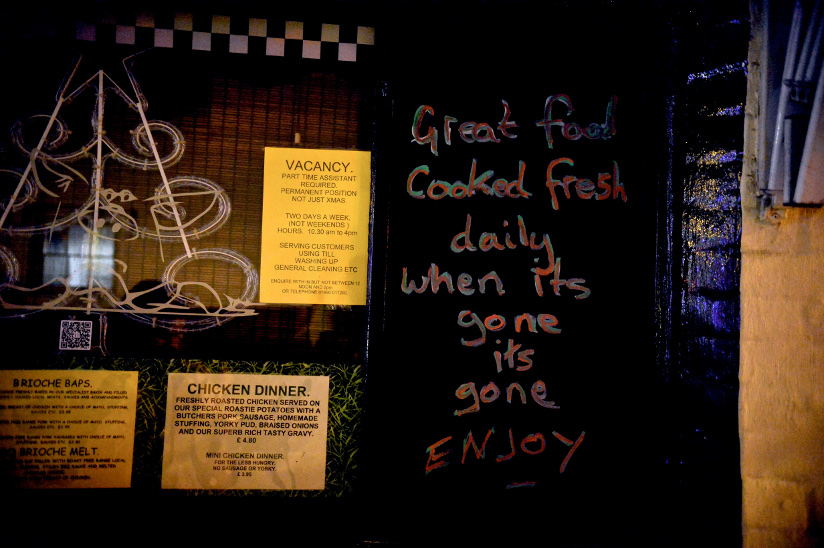 VACANCY.
PART TIME ASSISTANT
REQUIRED.
PERMANENT POSITION
NOT JUST XMAS.
TWO DAYS A WEEK,
(NOT WEEKENDS)
HOURS. 10.30 am to 4pm
SERVING CUSTOMERS
USING TILL
WASHING UP
GENERAL CLEANING ETC
ENQUIRE WITH IN BUT NOT BETWEEN 12
OR TELEPHONE
Great food
Cooked fresh
daily
when its
gone
its
gone
ENJOY
BRIOCHE BAPS.
BRIOCHE MELT.
CHICKEN DINNER.
FRESHLY ROASTED CHICKEN SERVED ON
OUR SPECIAL ROASTIE POTATOES WITH A
BUTCHERS PORK SAUSAGE, HOMEMADE
STUFFING, YORKY PUD, BRAISED ONIONS
AND OUR SUPERB RICH TASTY GRAVY.
£ 4.80
MINI CHICKEN DINNER.
FOR THE LESS HUNGRY.
NO SAUSAGE OR YORKY.